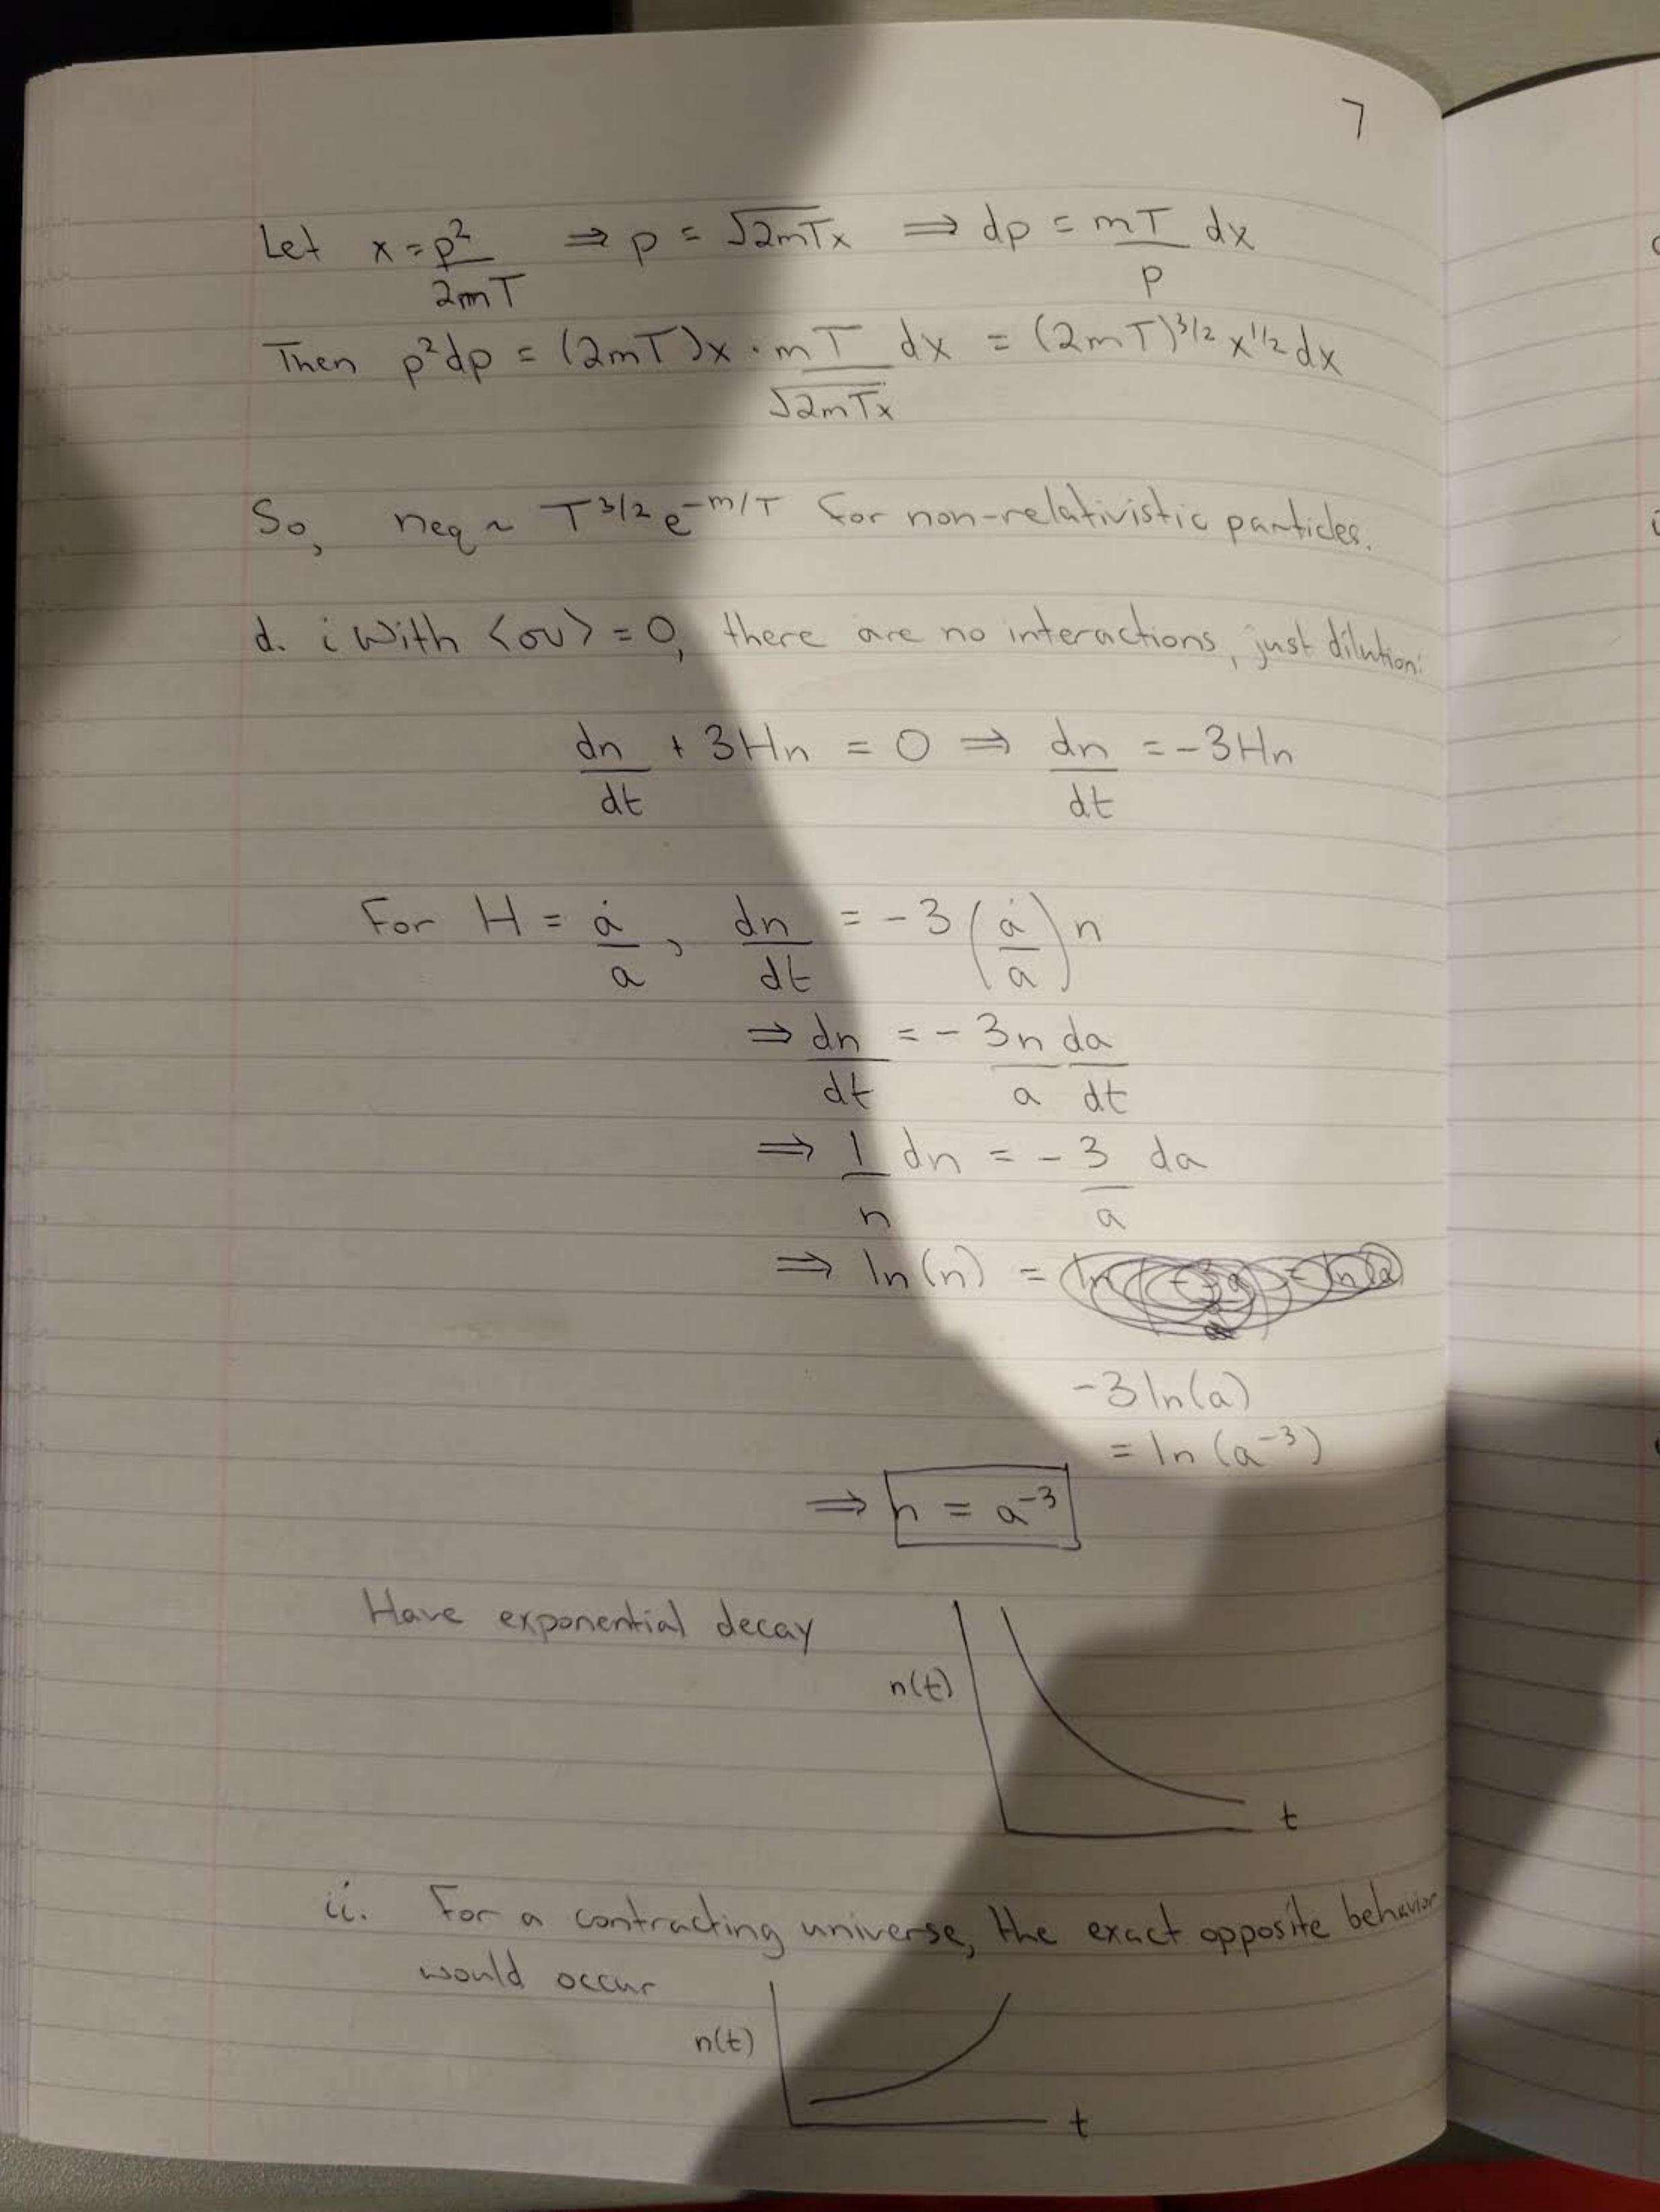 7
Let x = p²/2mT ⇒ p = √2mTx ⇒ dp = mT/p dx
Then p²dp = (2mT)x · mT/√2mTx dx = (2mT)^3/2 x^1/2 dx
So, neq ~ T^3/2 e^-m/T for non-relativistic particles.
d. i With <σv> = 0, there are no interactions, just dilution:
dn/dt + 3Hn = 0 ⇒ dn/dt = -3Hn
For H = ȧ/a, dn/dt = -3(ȧ/a)n
⇒ dn/dt = -3n/a da/dt
⇒ 1/n dn = -3/a da
⇒ ln(n) =
-3ln(a)
= ln(a^-3)
⇒ n = a^-3
Have exponential decay
n(t)
t
ii. For a contracting universe, the exact opposite behavior
would occur
n(t)
t